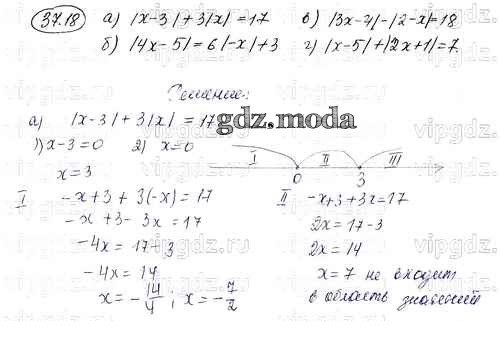 37.18 а) |x-3|+3|x|=17 в) |3x-4|-|2-x|=18
б) |4x-5|=6|-x|+3 г) |x-5|+|2x+1|=7
Решение:
а) |x-3|+3|x|=17
gdz.moda
1) x-3=0 2) x=0
I II III
x=3
0 3
I -x+3+3(-x)=17
-x+3-3x=17
-4x=17-3
-4x=14
x=-14/4; x=-7/2
II -x+3+3x=17
2x=17-3
2x=14
x=7 не входит
в область значений
vipgdz.ru